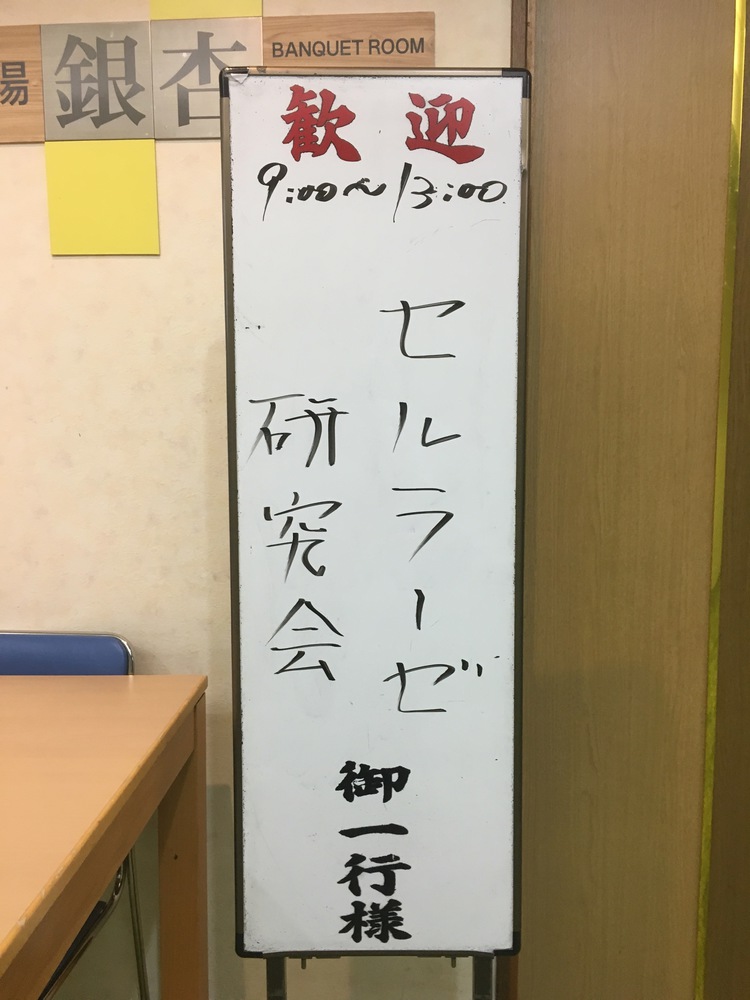 場
銀杏
BANQUET ROOM
歓迎
9:00〜13:00
セルラーゼ
研究会
御一行様